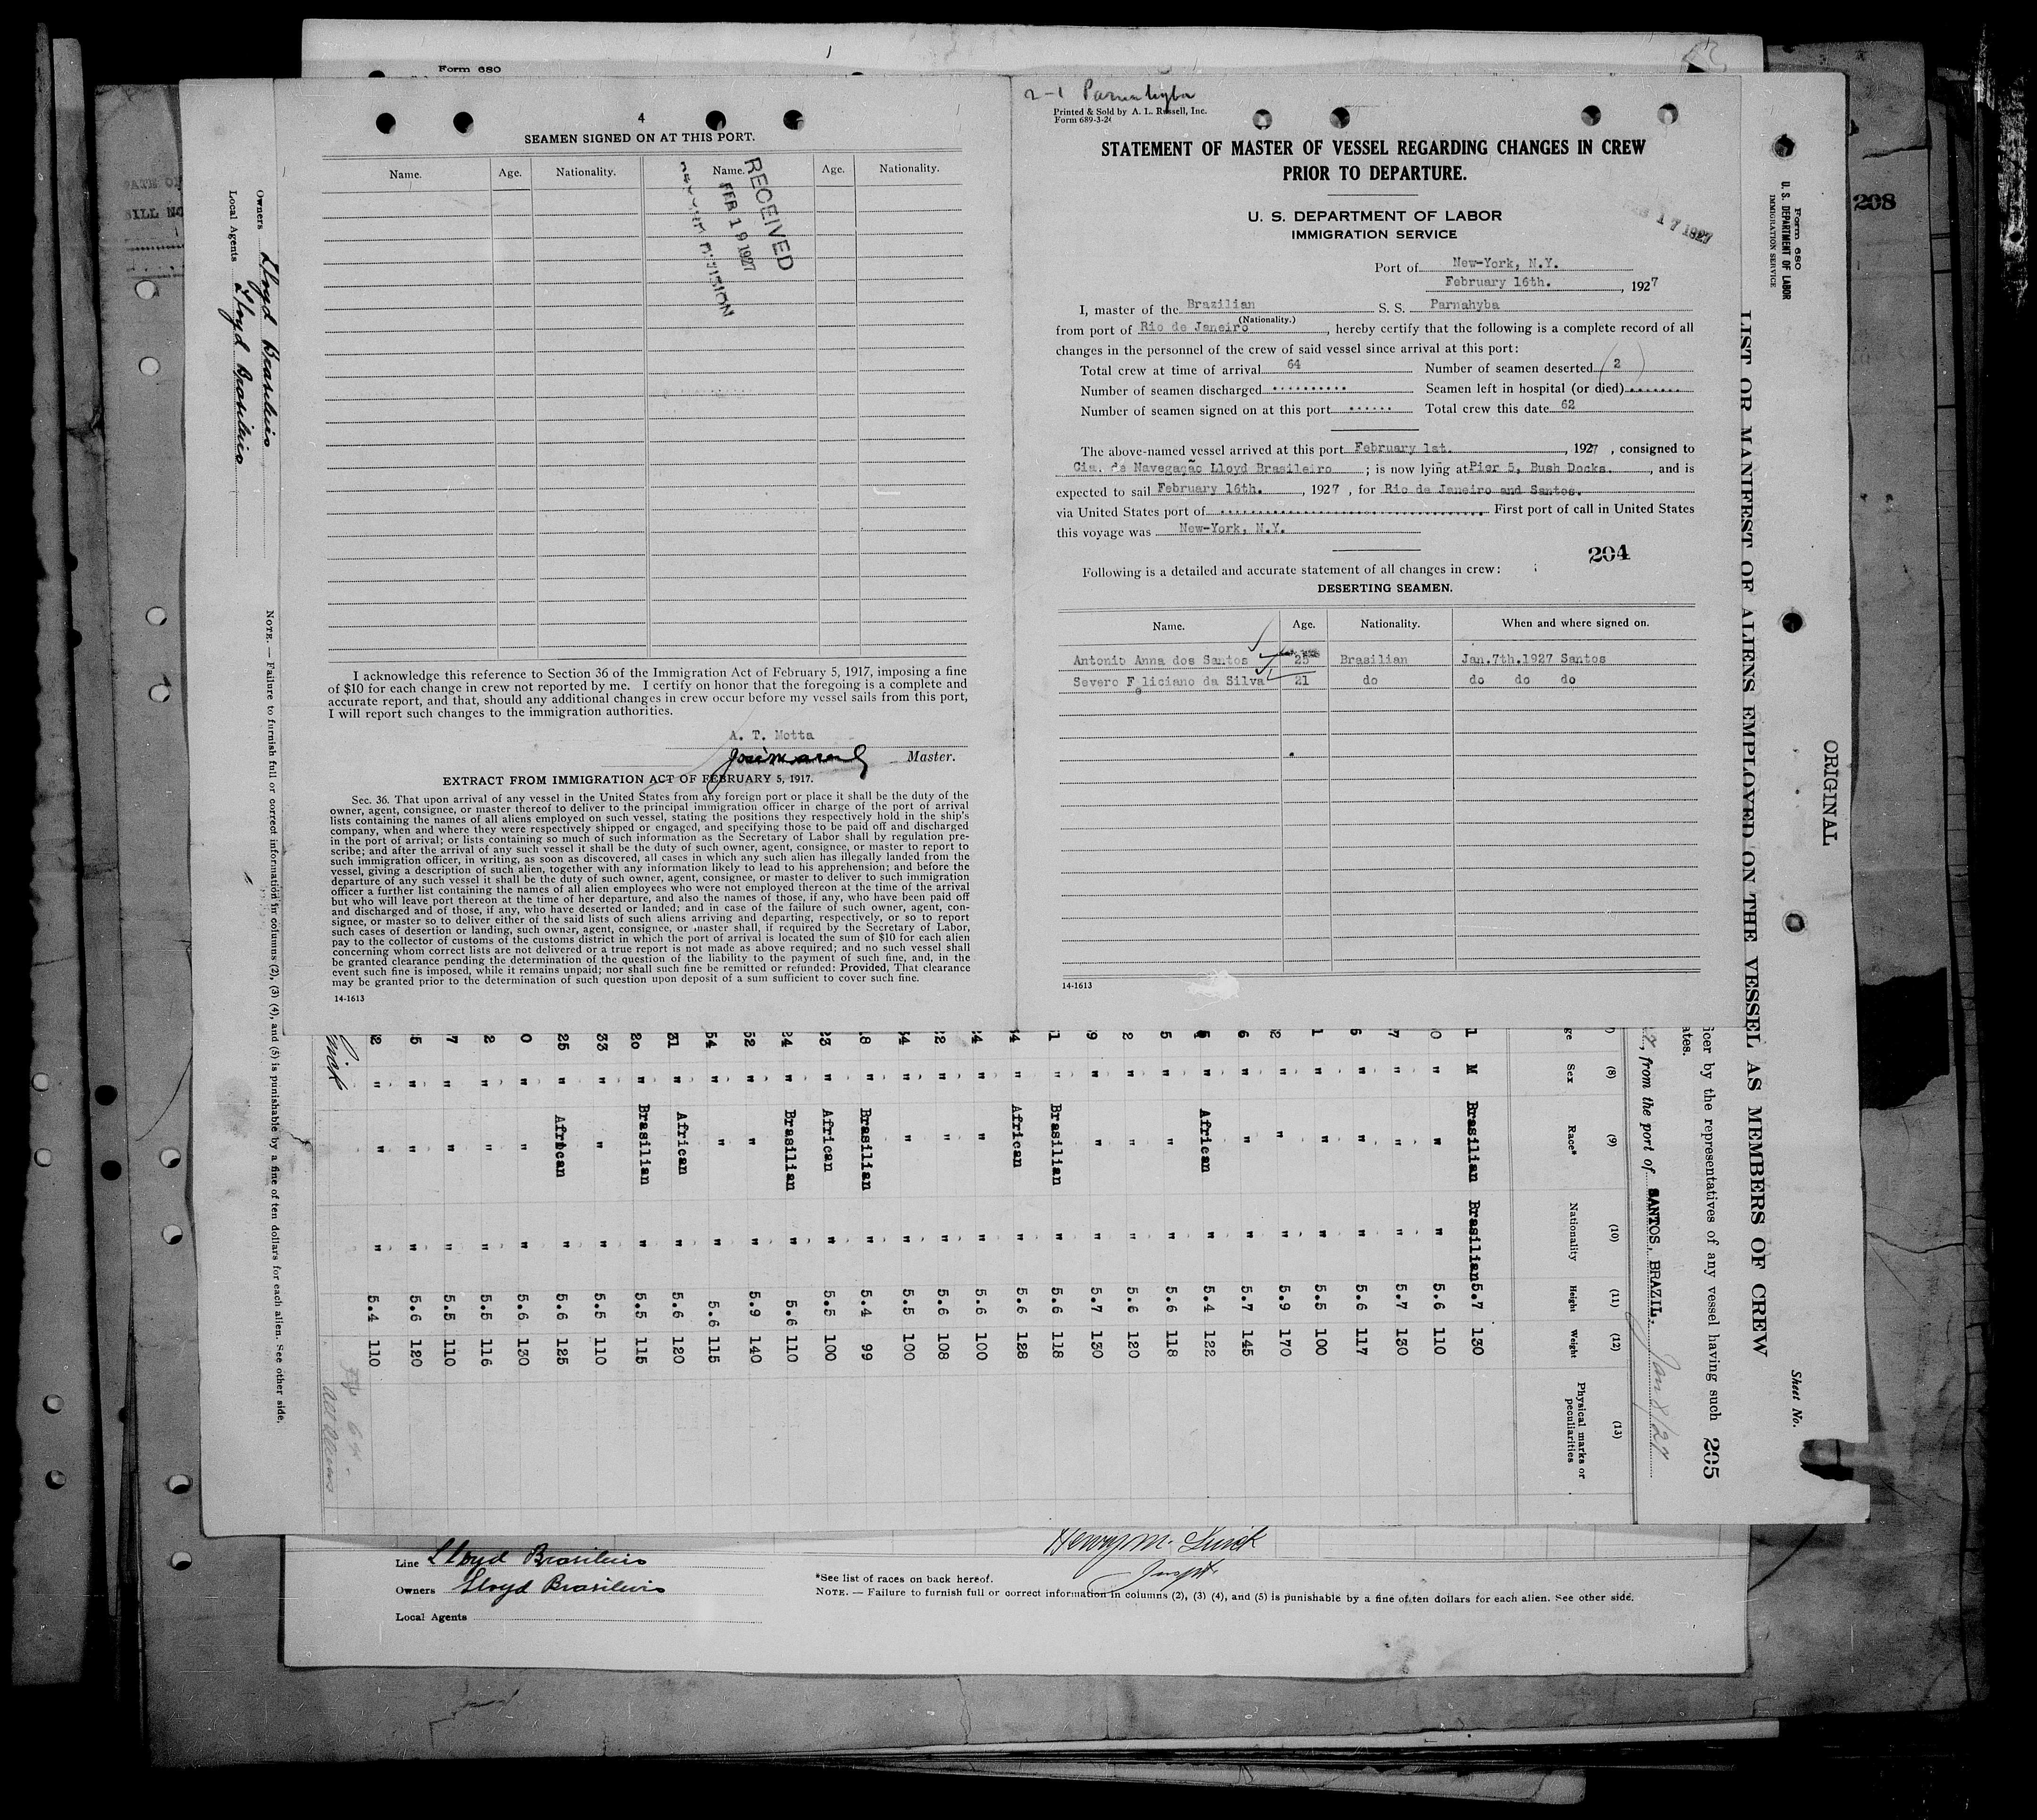 Form 680
4
SEAMEN SIGNED ON AT THIS PORT.
Name. Age. Nationality. Name. Age. Nationality.
RECEIVED
FEB 19 1927
DIVISION
I acknowledge this reference to Section 36 of the Immigration Act of February 5, 1917, imposing a fine
of $10 for each change in crew not reported by me. I certify on honor that the foregoing is a complete and
accurate report, and that, should any additional changes in crew occur before my vessel sails from this port,
I will report such changes to the immigration authorities.
A. T. Motta
Master.
EXTRACT FROM IMMIGRATION ACT OF FEBRUARY 5, 1917.
Sec. 36. That upon arrival of any vessel in the United States from any foreign port or place it shall be the duty of the
owner, agent, consignee, or master thereof to deliver to the principal immigration officer in charge of the port of arrival
lists containing the names of all aliens employed on such vessel, stating the positions they respectively hold in the ship's
company, when and where they were respectively shipped or engaged, and specifying those to be paid off and discharged
in the port of arrival; or lists containing so much of such information as the Secretary of Labor shall by regulation pre-
scribe; and after the arrival of any such vessel it shall be the duty of such owner, agent, consignee, or master to report to
such immigration officer, in writing, as soon as discovered, all cases in which any such alien has illegally landed from the
vessel, giving a description of such alien, together with any information likely to lead to his apprehension; and before the
departure of any such vessel it shall be the duty of such owner, agent, consignee, or master to deliver to such immigration
officer a further list containing the names of all alien employees who were not employed thereon at the time of the arrival
but who will leave port thereon at the time of her departure, and also the names of those, if any, who have been paid off
and discharged and of those, if any, who have deserted or landed; and in case of the failure of such owner, agent, con-
signee, or master so to deliver either of the said lists of such aliens arriving and departing, respectively, or so to report
such cases of desertion or landing, such owner, agent, consignee, or master shall, if required by the Secretary of Labor,
pay to the collector of customs of the customs district in which the port of arrival is located the sum of $10 for each alien
concerning whom correct lists are not delivered or a true report is not made as above required; and no such vessel shall
be granted clearance pending the determination of the question of the liability to the payment of such fine, and, in the
event such fine is imposed, while it remains unpaid; nor shall such fine be remitted or refunded: Provided, That clearance
may be granted prior to the determination of such question upon deposit of a sum sufficient to cover such fine.
14-1613
2-1 Parnahyba
Printed & Sold by A. L. Russell, Inc.
Form 689-3-26
STATEMENT OF MASTER OF VESSEL REGARDING CHANGES IN CREW
PRIOR TO DEPARTURE.
U. S. DEPARTMENT OF LABOR
IMMIGRATION SERVICE
17 1927
Port of New-York, N.Y.
February 16th. , 1927
I, master of the Brazilian S. S. Parnahyba
(Nationality.)
from port of Rio de Janeiro , hereby certify that the following is a complete record of all
changes in the personnel of the crew of said vessel since arrival at this port:
Total crew at time of arrival 64 Number of seamen deserted 2
Number of seamen discharged Seamen left in hospital (or died)
Number of seamen signed on at this port Total crew this date 62
The above-named vessel arrived at this port February 1st. , 1927 , consigned to
Cia. de Navegação Lloyd Brasileiro ; is now lying at Pier 5, Bush Docks. , and is
expected to sail February 16th. , 1927 , for Rio de Janeiro and Santos.
via United States port of First port of call in United States
this voyage was New-York, N.Y.
204
Following is a detailed and accurate statement of all changes in crew:
DESERTING SEAMEN.
Name. Age. Nationality. When and where signed on.
Antonio Anna dos Santos 25 Brasilian Jan.7th.1927 Santos
Severo Feliciano da Silva 21 do do do do
14-1613
Owners Lloyd Brasileiro
Local Agents Lloyd Brasileiro
NOTE. — Failure to furnish full or correct information in columns (2), (3) (4), and (5) is punishable by a fine of ten dollars for each alien. See other side.
Form 680
U. S. DEPARTMENT OF LABOR
IMMIGRATION SERVICE
ORIGINAL
Sheet No.
LIST OR MANIFEST OF ALIENS EMPLOYED ON THE VESSEL AS MEMBERS OF CREW
icer by the representatives of any vessel having such 205
ates.
, from the port of SANTOS, BRAZIL. Jan 8/27
(8) (9) (10) (11) (12) (13)
ge Sex Race* Nationality Height Weight Physical marks or peculiarities
1 M Brasilian Brasilian 5.7 130
0 " " " 5.6 110
7 " " " 5.7 130
6 " " " 5.6 117
1 " " " 5.5 100
2 " " " 5.9 170
6 " " " 5.7 145
5 " African " 5.4 122
5 " " " 5.6 118
2 " " " 5.6 120
9 " " " 5.7 130
1 " Brasilian " 5.6 118
4 " African " 5.6 128
4 " " " 5.6 100
2 " " " 5.6 108
4 " " " 5.5 100
18 " Brasilian " 5.4 99
23 " African " 5.5 100
24 " Brasilian " 5.6 110
52 " " " 5.9 140
54 " " " 5.6 115
31 " African " 5.6 120
20 " Brasilian " 5.5 115
33 " " " 5.5 110
25 " African " 5.6 125
0 " " " 5.6 130
2 " " " 5.5 116
7 " " " 5.5 110
5 " " " 5.6 120
2 " " " 5.4 110
Line Lloyd Brasileiro
Owners Lloyd Brasileiro
Local Agents
Henry M.
*See list of races on back hereof.
NOTE. — Failure to furnish full or correct information in columns (2), (3) (4), and (5) is punishable by a fine of ten dollars for each alien. See other side.
208